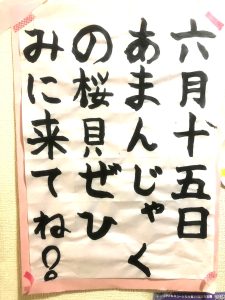 六月十五日
あまんじゃく
の桜貝ぜひ
みに来てね!